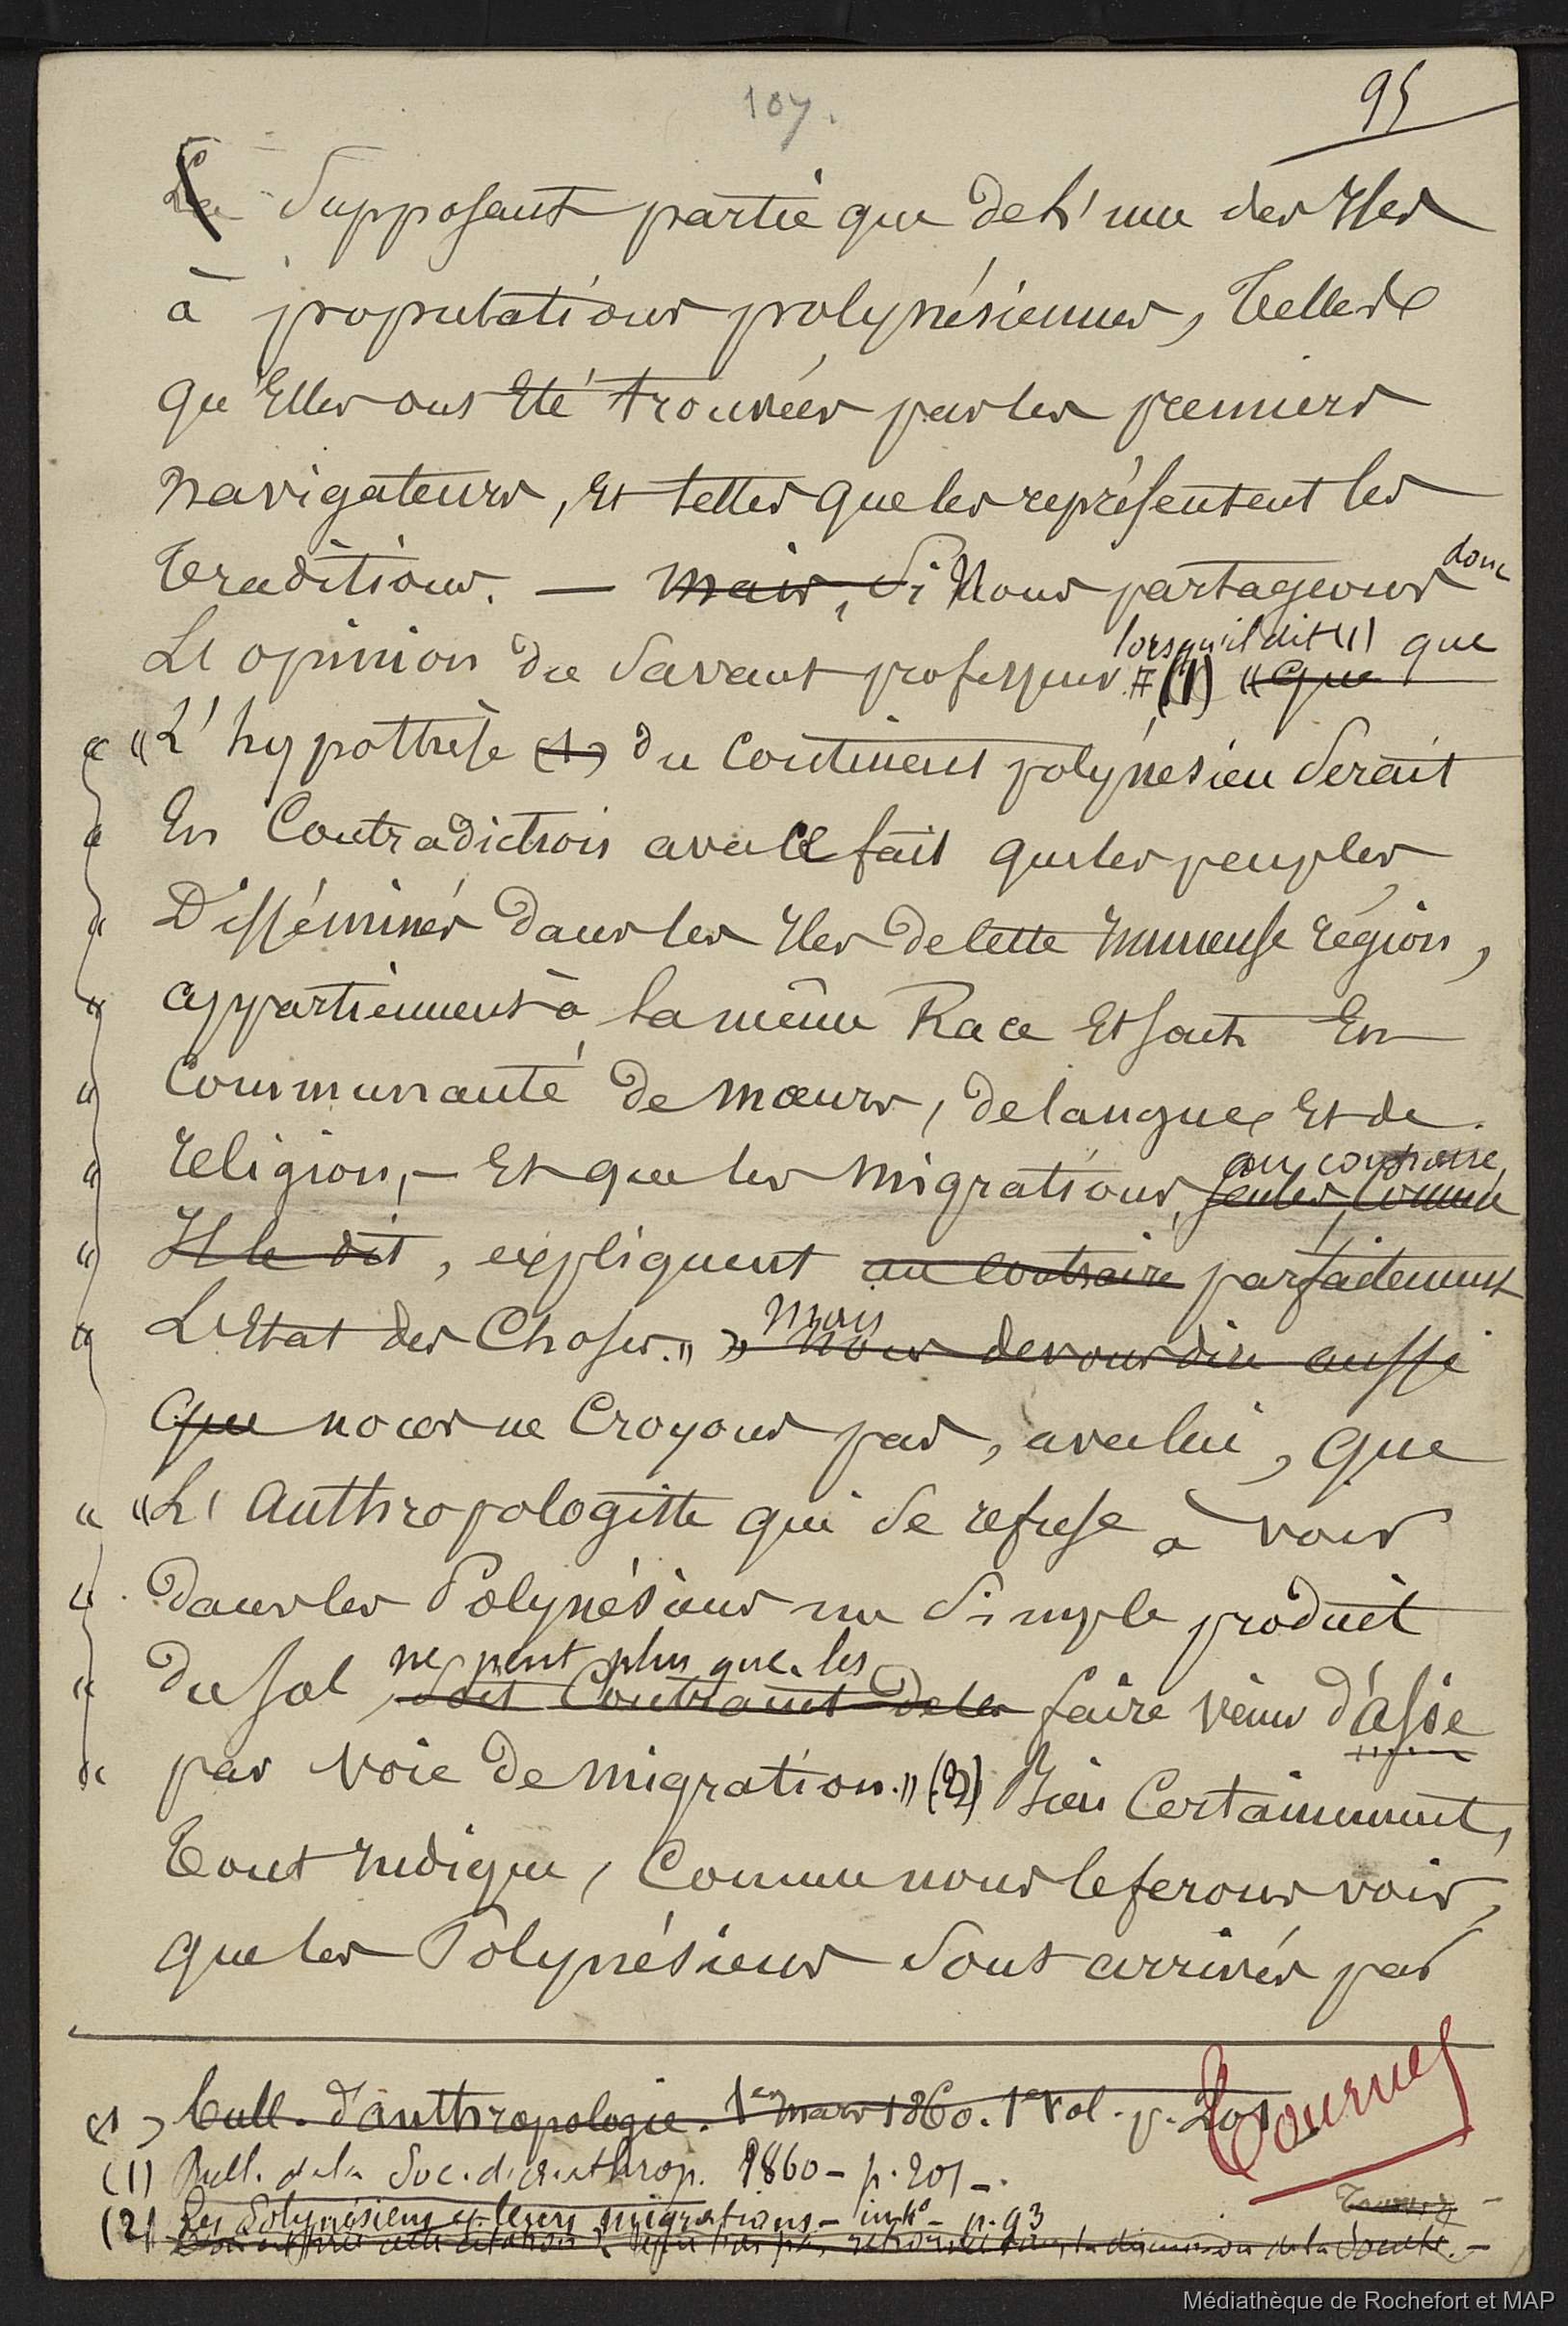 107.
95
La Supposant partie que de l'une des Iles
à populations polynésiennes, telles
qu'Elles ont Eté trouvées par les premiers
navigateurs, Et telles que les représentent les
traditions. — Mais, Si Nous partageons donc
L'opinion du Savant professeur # (1) lorsqu'il dit (1) que « que
« L'hypothèse (1) du Continent polynésien Serait
« En Contradiction avec le fait que les peuples
« Disséminés dans les Iles de cette Immense région,
« appartiennent à la même Race Et sont En
« Communauté de Mœurs, de langue Et de
« religion, — Et que les Migrations, au contraire, seules, Comme
« Il le dit, expliquent au Contraire parfaitement
« L'Etat des Choses. » » Mais Nous devons dire aussi
que nous ne Croyons pas, avec lui, que
« L'Anthropologiste qui Se refuse à voir
« dans les Polynésiens un Simple produit
« du sol ne peut plus que les Soit Contraint de les faire venir d'asie
« par voie de migration. » (2) Bien Certainement,
tout Indique, Comme nous le ferons voir,
que les Polynésiens Sont arrivés par
(1) bull. d'anthropologie. 1er mars 1860. 1er Vol. p. 201
(1) Bull. de la Soc. d'Anthrop. 1860 — p. 201 —.
Tournez
(2) Les Polynésiens et leurs migrations — intr° — p. 93
Tournez —
cette citation retrouvée dans la discussion de la Société. —
Médiathèque de Rochefort et MAP